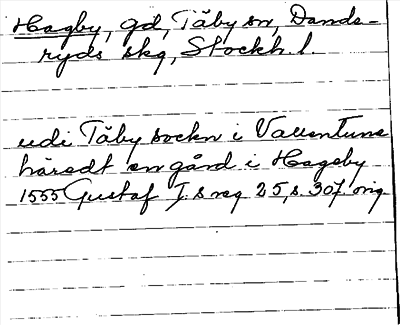 Hagby, gd, Täby sn, Dands-
ryds skg, Stockh. l.
udi Täby sockn i Vallentuna
häredt en gård i Hageby
1555 Gustaf I.s reg 25, s. 307. orig.